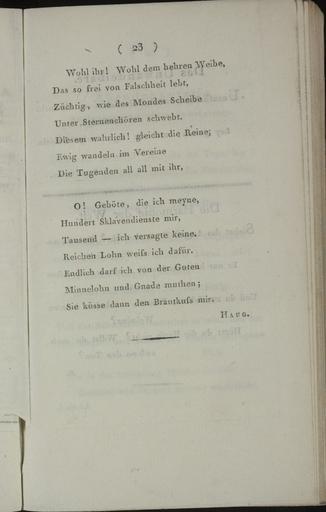 ( 23 )
Wohl ihr! Wohl dem hehren Weibe,
Das so frei von Falschheit lebt,
Züchtig, wie des Mondes Scheibe
Unter Sternenchören schwebt.
Diesem wahrlich! gleicht die Reine;
Ewig wandeln im Vereine
Die Tugenden all all mit ihr,
O! Geböte, die ich meyne,
Hundert Sklavendienste mir,
Tausend — ich versagte keine.
Reichen Lohn weiſs ich dafür.
Endlich darf ich von der Guten
Minnelohn und Gnade muthen;
Sie küsse dann den Brautkuſs mir.
HAUG.